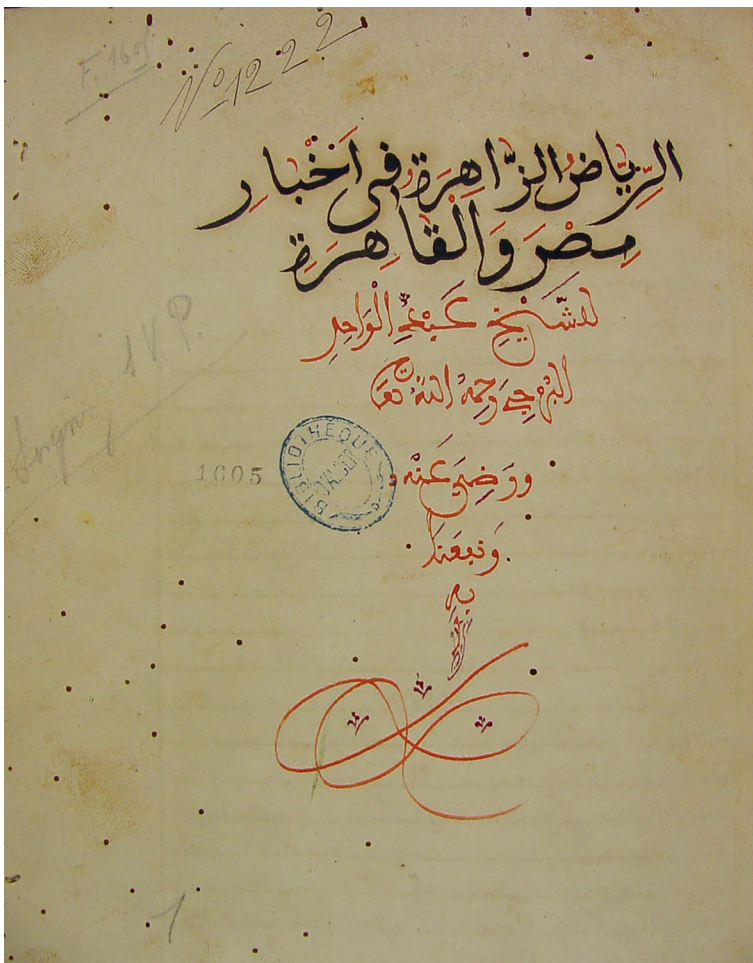 F. 1605
No 1222
الرِّيَاضُ الزَّاهِرَة في أَخْبَارِ
مِصْرَ وَالْقَاهِرَةِ
للشَّيْخِ عَبْدِ الْوَاحِدِ
البُرْجِي رحمهُ اللهُ تعَ
ورَضِيَ عَنْهُ
وَنَفَعَنَا
بِهِ
1605
BIBLIOTHÈQUE
1